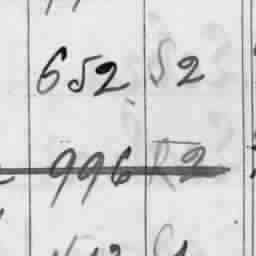 652 52
996 52